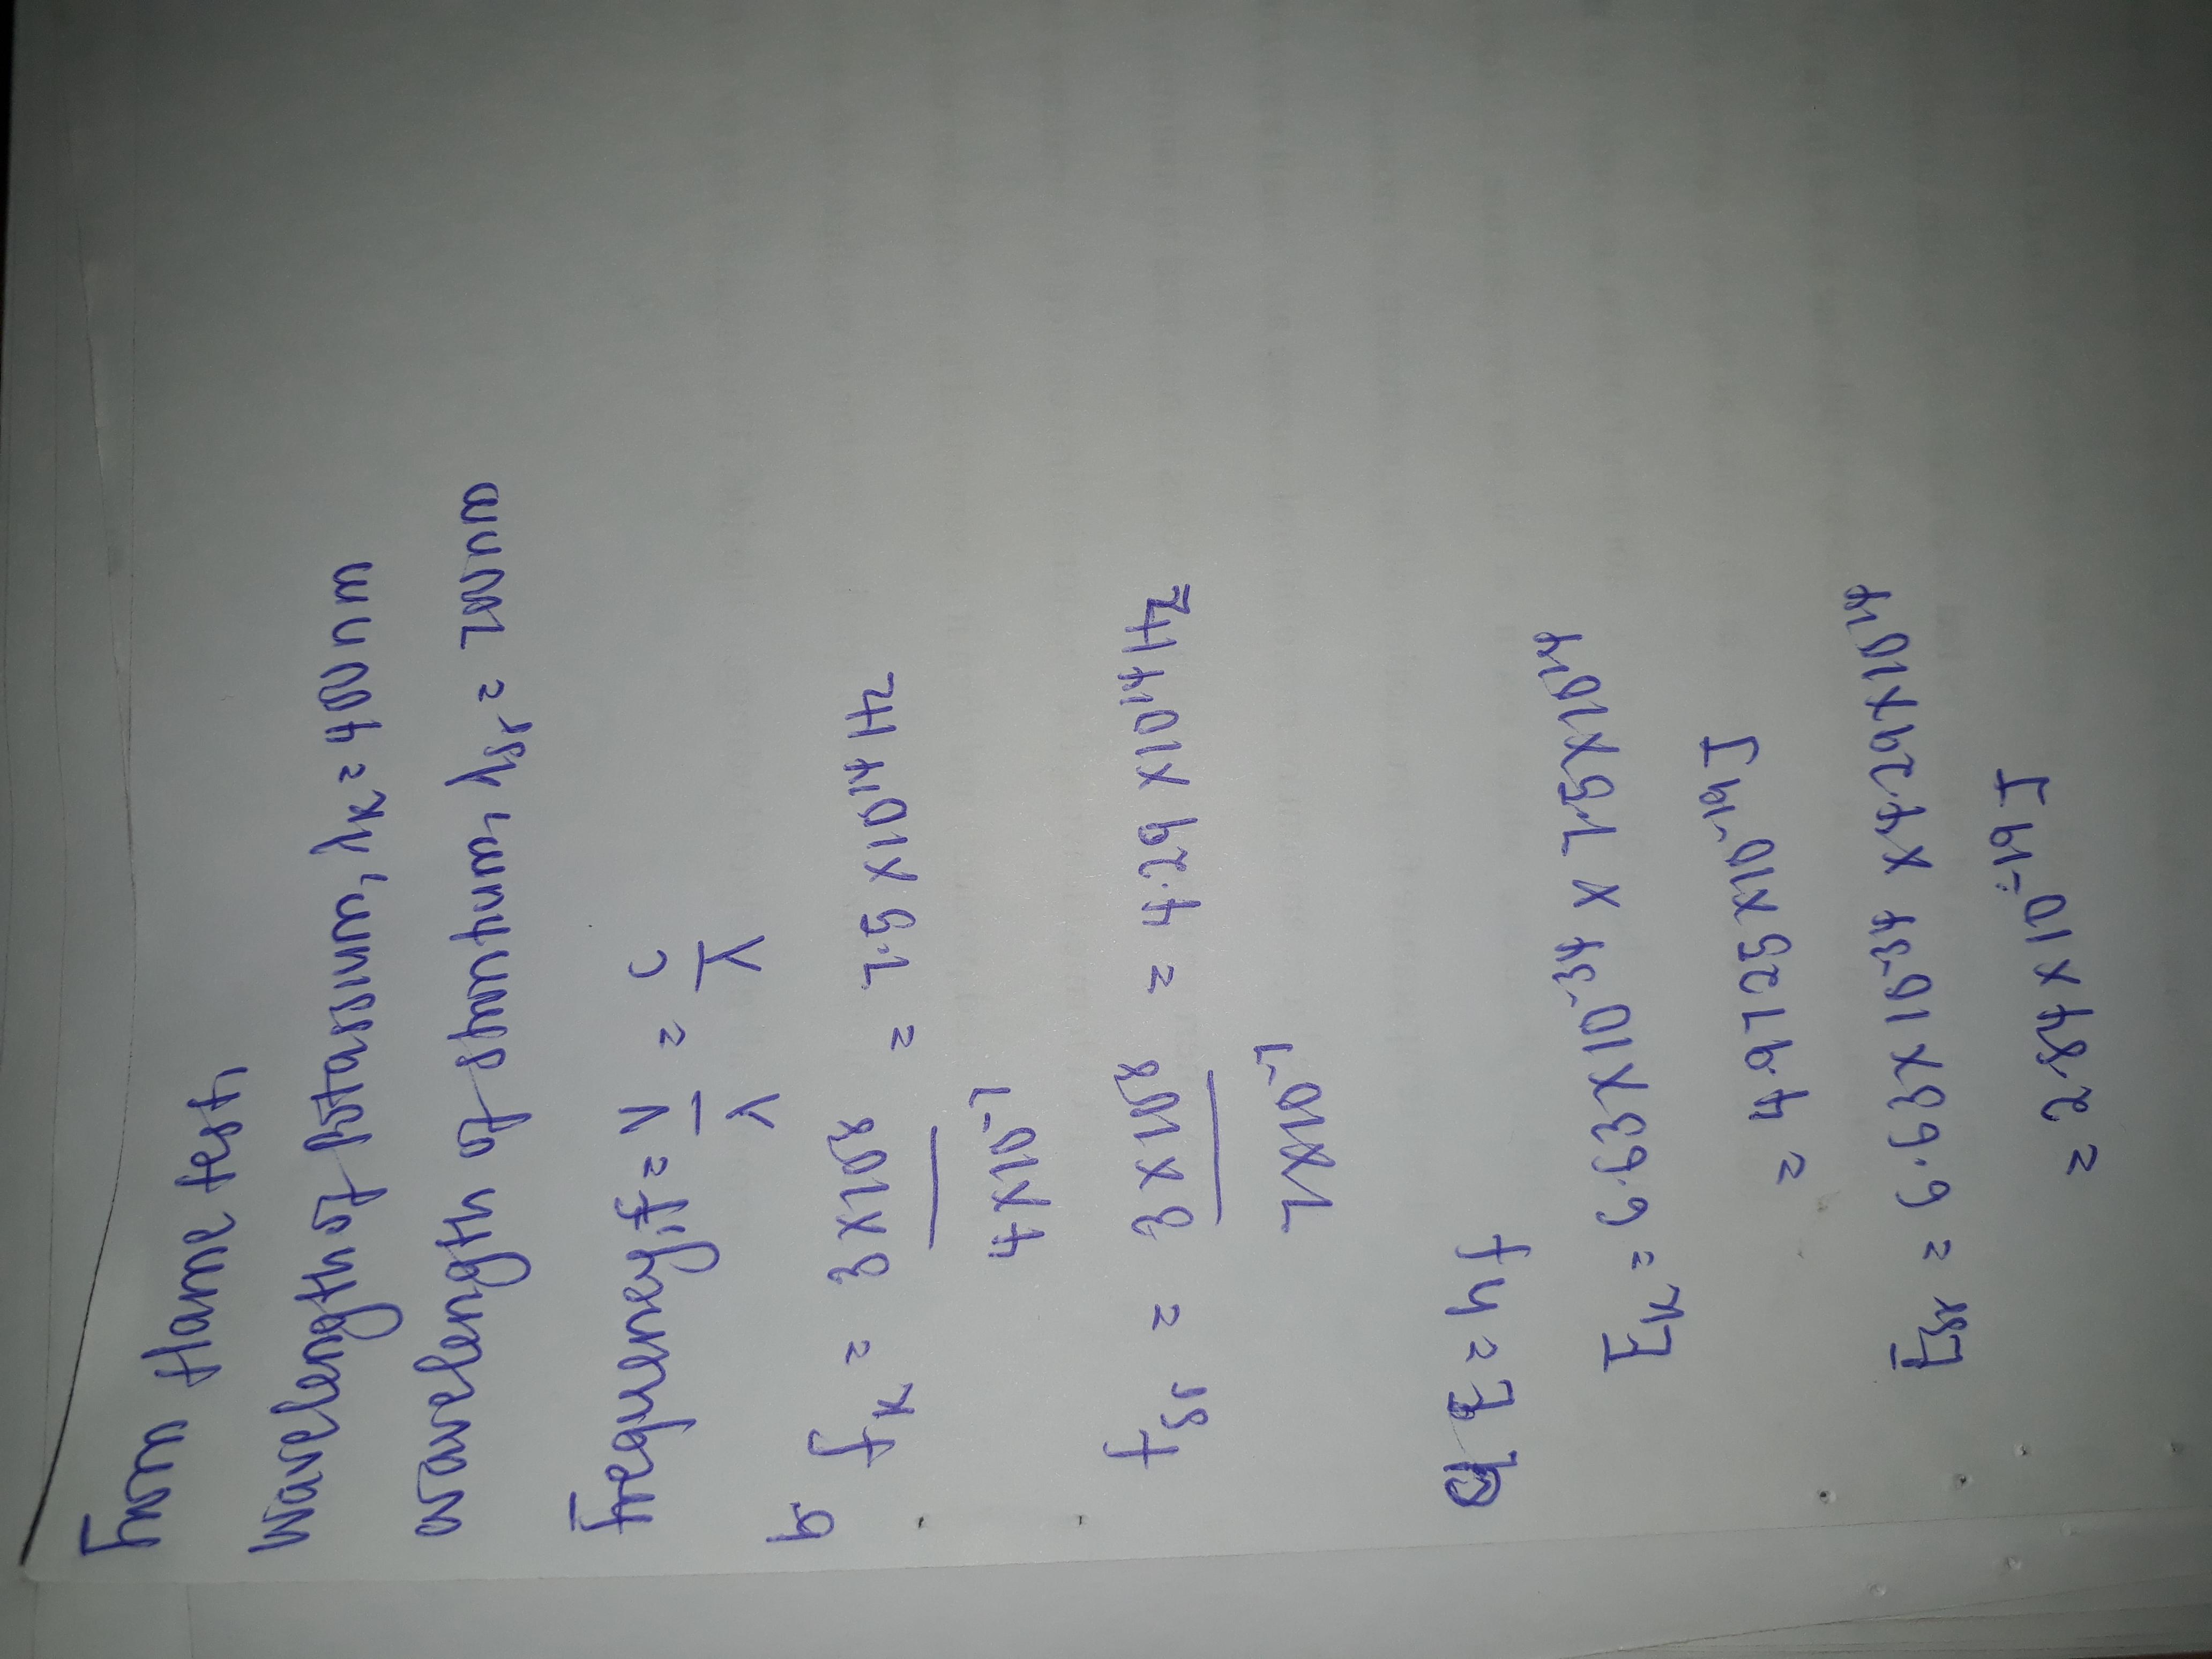 From Flame test,
Wavelength of Potassium, λK = 400nm
wavelength of strontium, λSr = 700nm
Frequency, f = V/λ = C/λ
b fK = 3 x 10⁸ / 4 x 10⁻⁷ = 7.5 x 10¹⁴ Hz
fSr = 3 x 10⁸ / 7 x 10⁻⁷ = 4.29 x 10¹⁴ Hz
E = hf
EK = 6.63 x 10⁻³⁴ x 7.5 x 10¹⁴
= 4.9725 x 10⁻¹⁹ J
ESr = 6.63 x 10⁻³⁴ x 4.29 x 10¹⁴
= 2.84 x 10⁻¹⁹ J